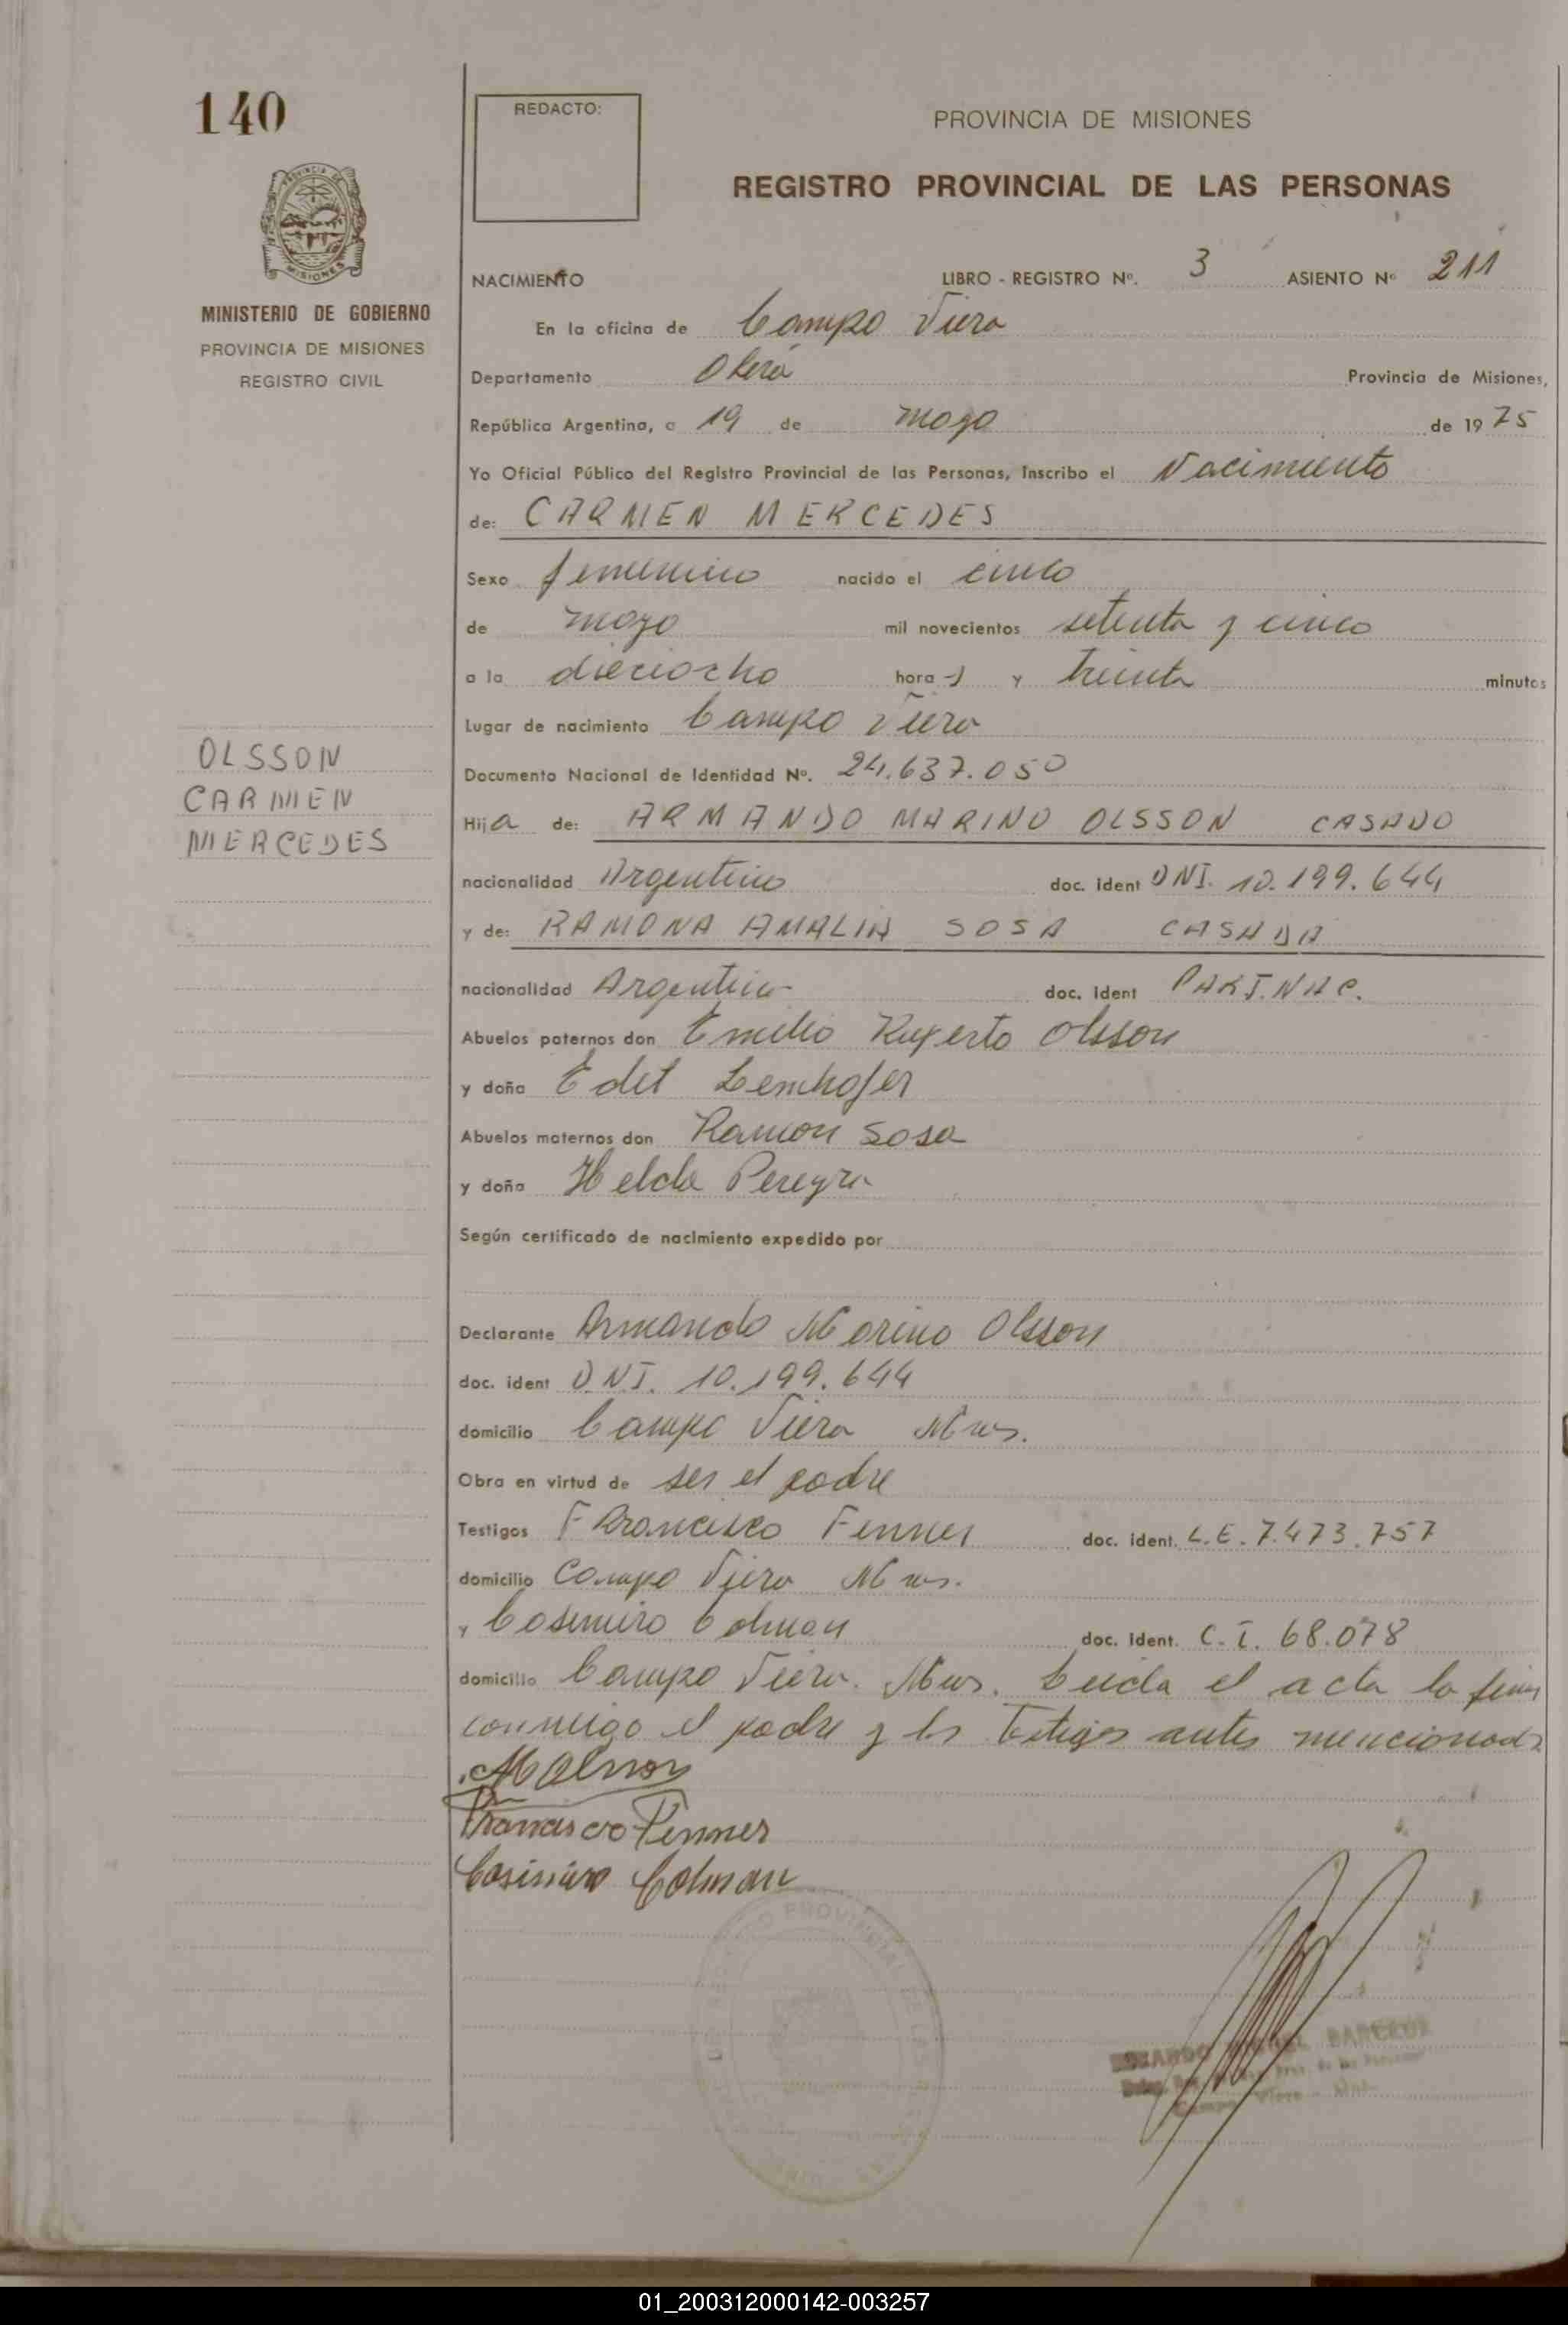 140
REDACTO:
PROVINCIA DE MISIONES
REGISTRO PROVINCIAL DE LAS PERSONAS
MISIONES
MINISTERIO DE GOBIERNO
PROVINCIA DE MISIONES
REGISTRO CIVIL
NACIMIENTO LIBRO - REGISTRO Nº. 3 ASIENTO Nº 211
En la oficina de Campo Viera
Departamento Oberá Provincia de Misiones,
República Argentina, a 19 de mayo de 1975
Yo Oficial Público del Registro Provincial de las Personas, Inscribo el Nacimiento
de: CARMEN MERCEDES
Sexo femenino nacido el cinco
de mayo mil novecientos setenta y cinco
a la dieciocho hora s y treinta minutos
Lugar de nacimiento Campo Viera
OLSSON
CARMEN
MERCEDES
Documento Nacional de Identidad Nº. 24.637.050
Hija de: ARMANDO MARINO OLSSON CASADO
nacionalidad Argentino doc. ident DNI. 10.199.644
y de: RAMONA AMALIA SOSA CASADA
nacionalidad Argentina doc. ident PART.NAC.
Abuelos paternos don Emilio Ruperto Olsson
y doña Edel Lemhofer
Abuelos maternos don Ramon Sosa
y doña Helda Pereyra
Según certificado de nacimiento expedido por
Declarante Armando Marino Olsson
doc. ident D.N.I. 10.199.644
domicilio Campo Viera Mnes.
Obra en virtud de ser el padre
Testigos Francisco Fenner doc. ident. L.E. 7.473.757
domicilio Campo Viera Mnes.
y Casimiro Colman doc. ident. C.I. 68.078
domicilio Campo Viera. Mnes. Leida el acta la firma
conmigo el padre y los Testigos antes mencionados
Francisco Fenner
Casimiro Colman
01_200312000142-003257